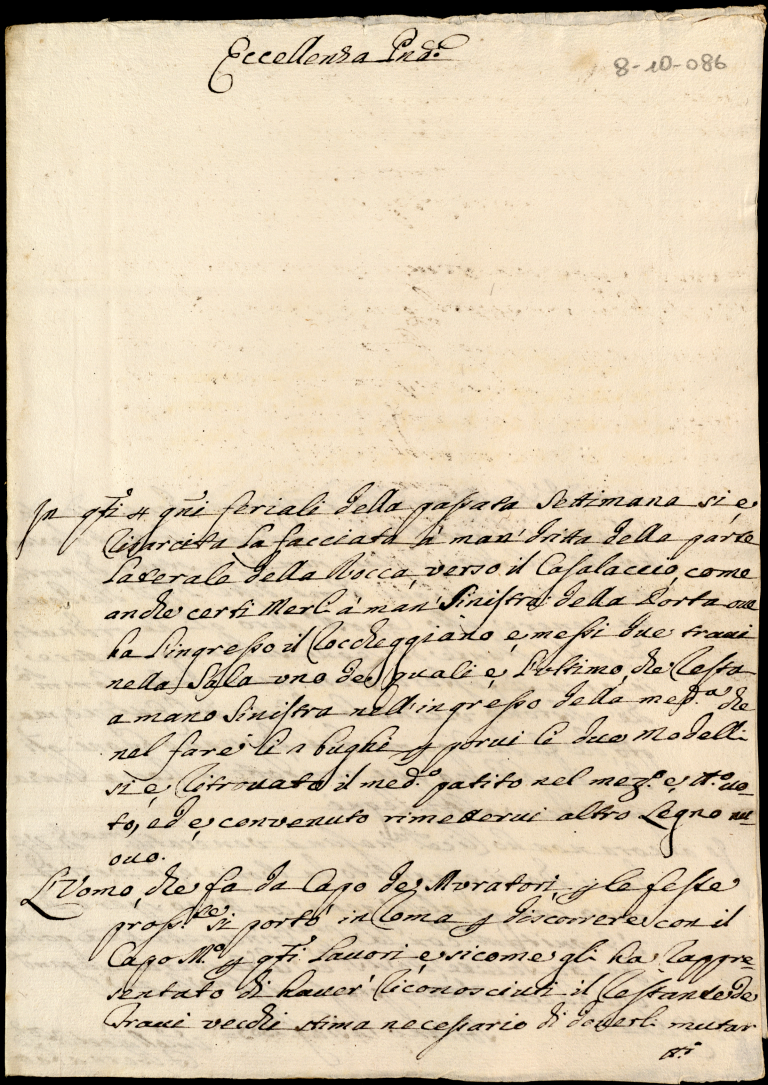 Eccellenza Pnã.
8-10-086
In q̃ti 4 gñi feriali della passata Settimana si è
risarcita La facciata à man' dritta della parte
Laterale della Rocca, verso il Casalaccio, come
anche certi Merli à man' Sinistra della Porta oue
ha L'ingresso il Roccheggiano, e messi due traui
nella Sala uno de quali è L'ultimo, che resta
a mano Sinistra nell'ingresso della med.a che
nel fare li a bughi p porui li due Modelli
si è ritrouato il med.o patito nel mez.o e
to, ed è conuenuto rimetterui altro Legno nu-
ouo.
L'Vomo, che fa da Capo de Muratori, p le feste
pross.me si portò in Roma p discorrere con il
Capo M.o p q̃ti Lauori e sicome gli ha rappre-
sentato di hauer' riconosciuti il restante de
Traui vecchi stima necessario di douerli mutar